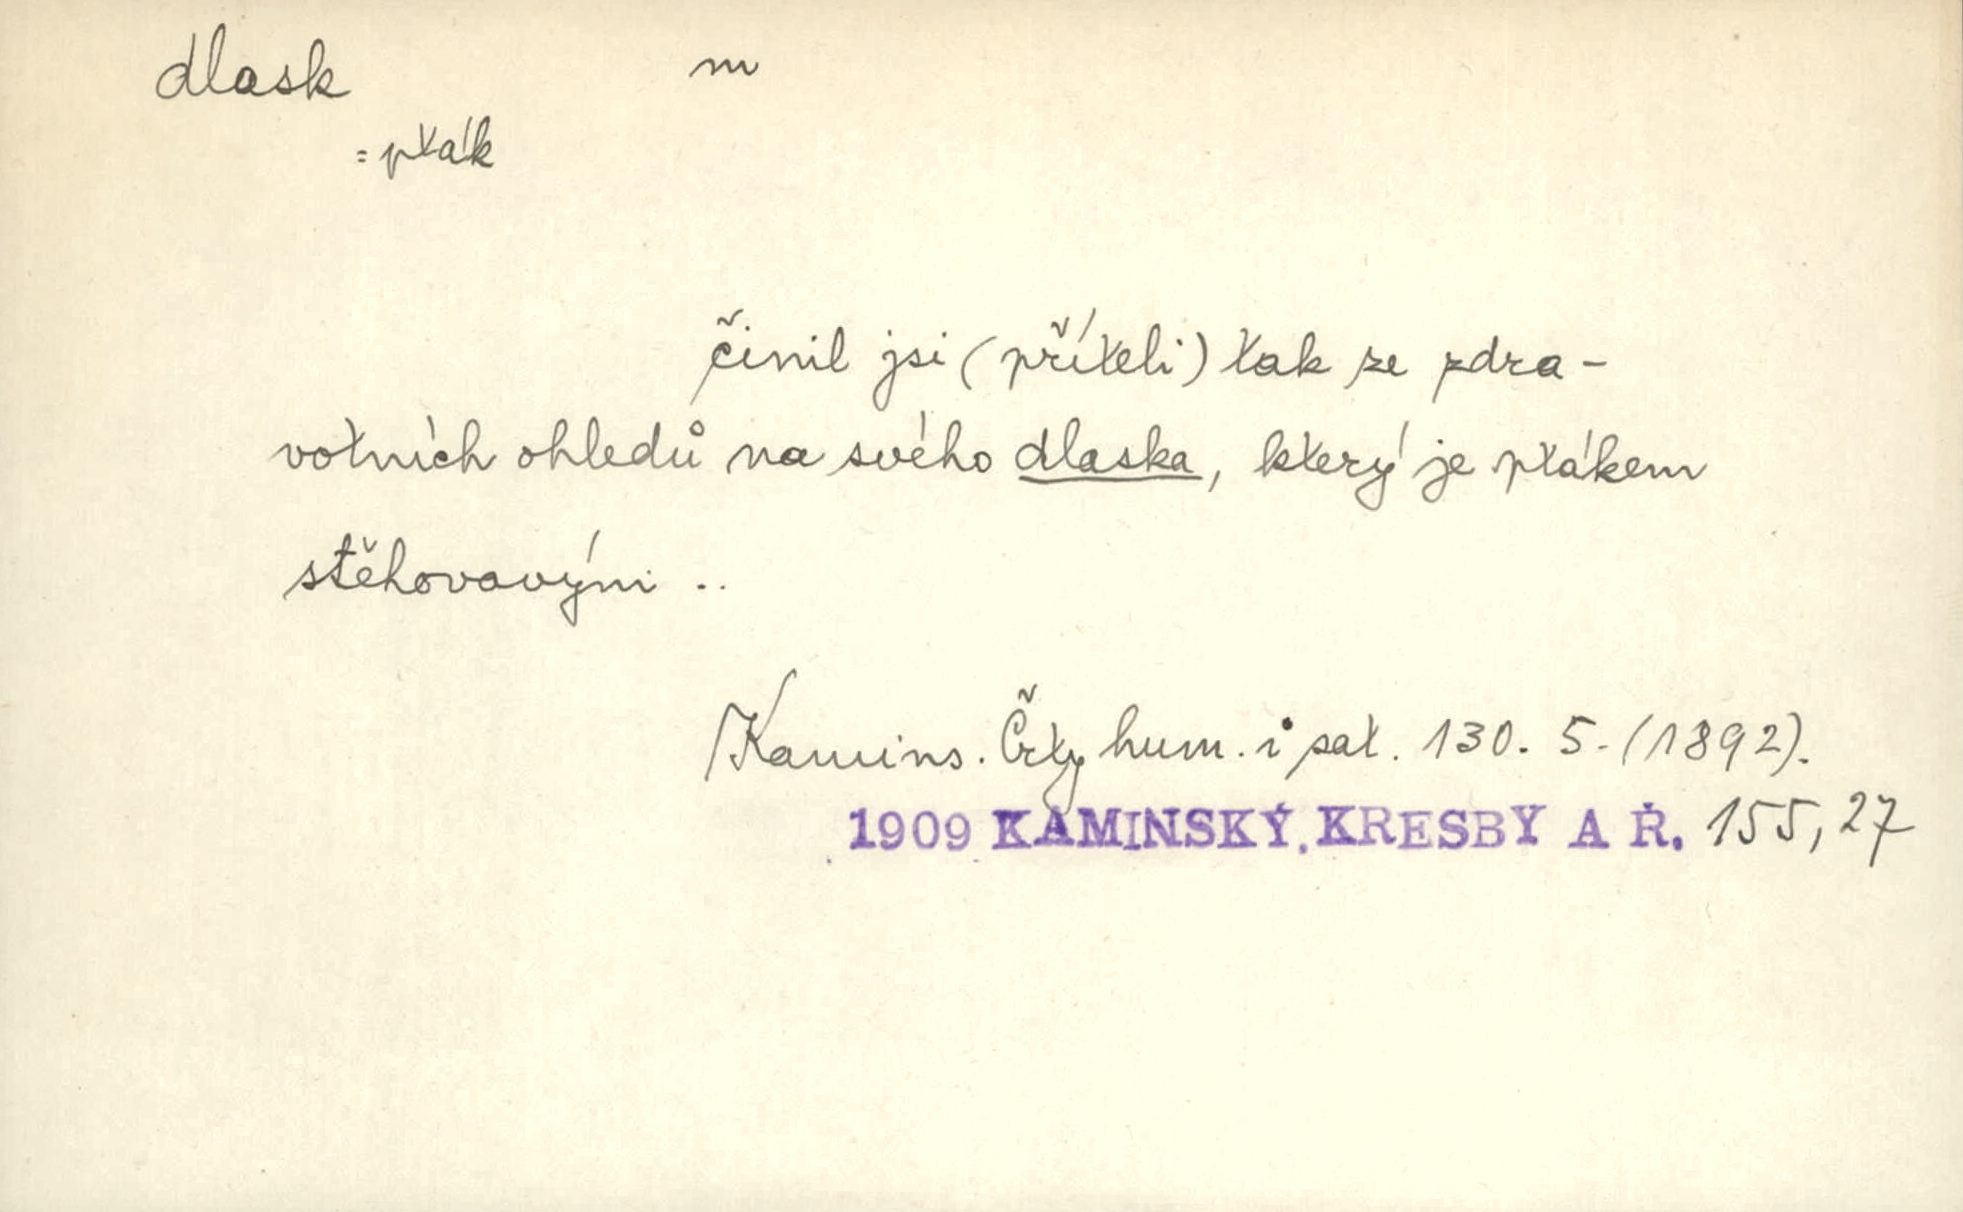 dlask m
= pták
činil jsi (příteli) tak ze zdra-
votních ohledů na svého dlaska, který je ptákem
stěhovavým ..
Kamins. Črty hum. i sat. 130. 5. (1892).
1909 KAMINSKÝ, KRESBY A Ř. 155, 27